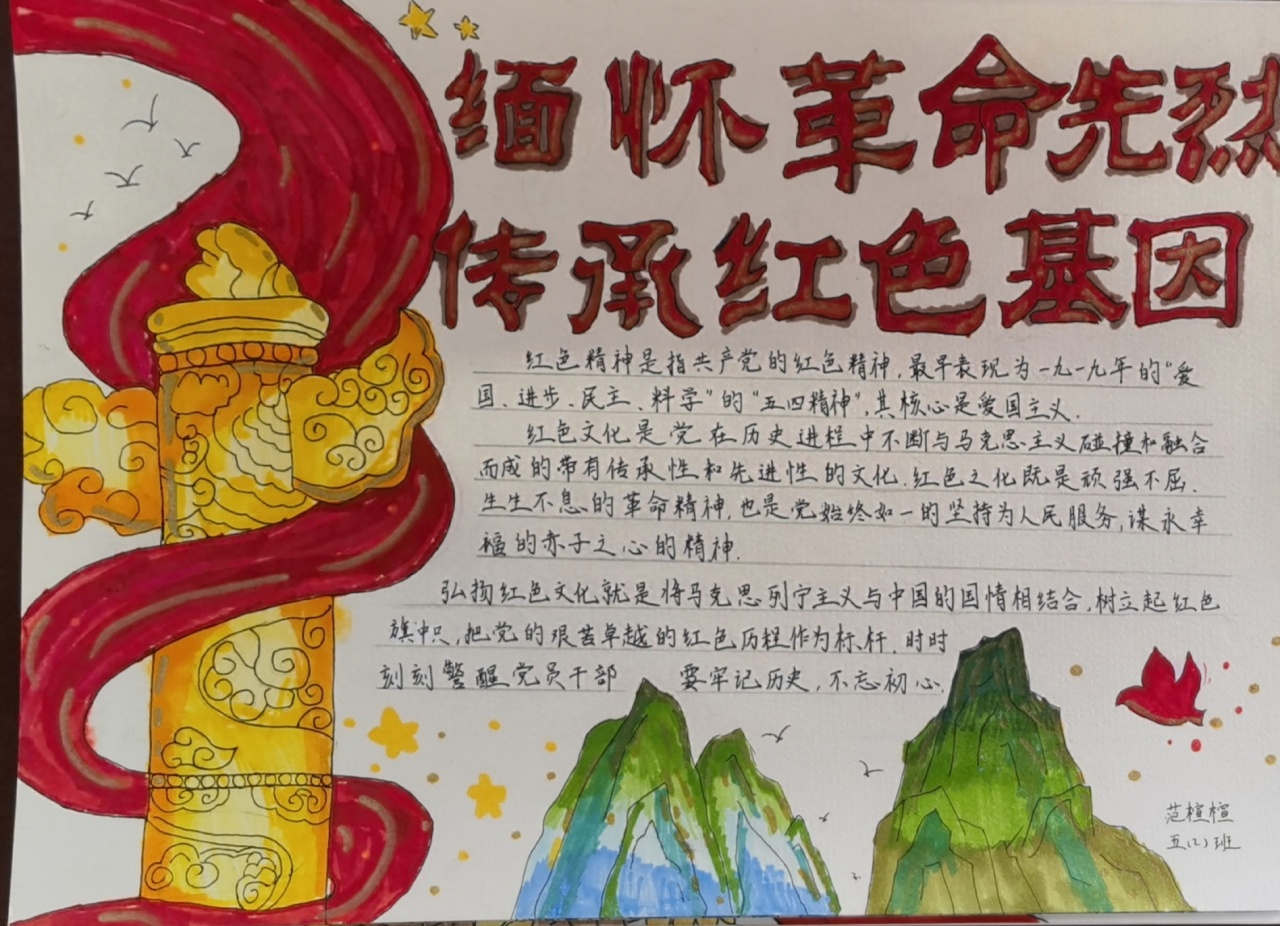 缅怀革命先烈
传承红色基因
红色精神是指共产党的红色精神,最早表现为一九一九年的“爱
国、进步、民主、科学”的“五四精神”,其核心是爱国主义.
红色文化是党在历史进程中不断与马克思主义碰撞和融合
而成的带有传承性和先进性的文化.红色之化既是顽强不屈.
生生不息的革命精神,也是党始终如一的坚持为人民服务,谋永幸
福的赤子之心的精神.
弘扬红色文化就是将马克思列宁主义与中国的国情相结合,树立起红色
旗帜,把党的艰苦卓越的红色历程作为标杆.时时
刻刻警醒党员干部 要牢记历史,不忘初心.
范楦楦
五(2)班